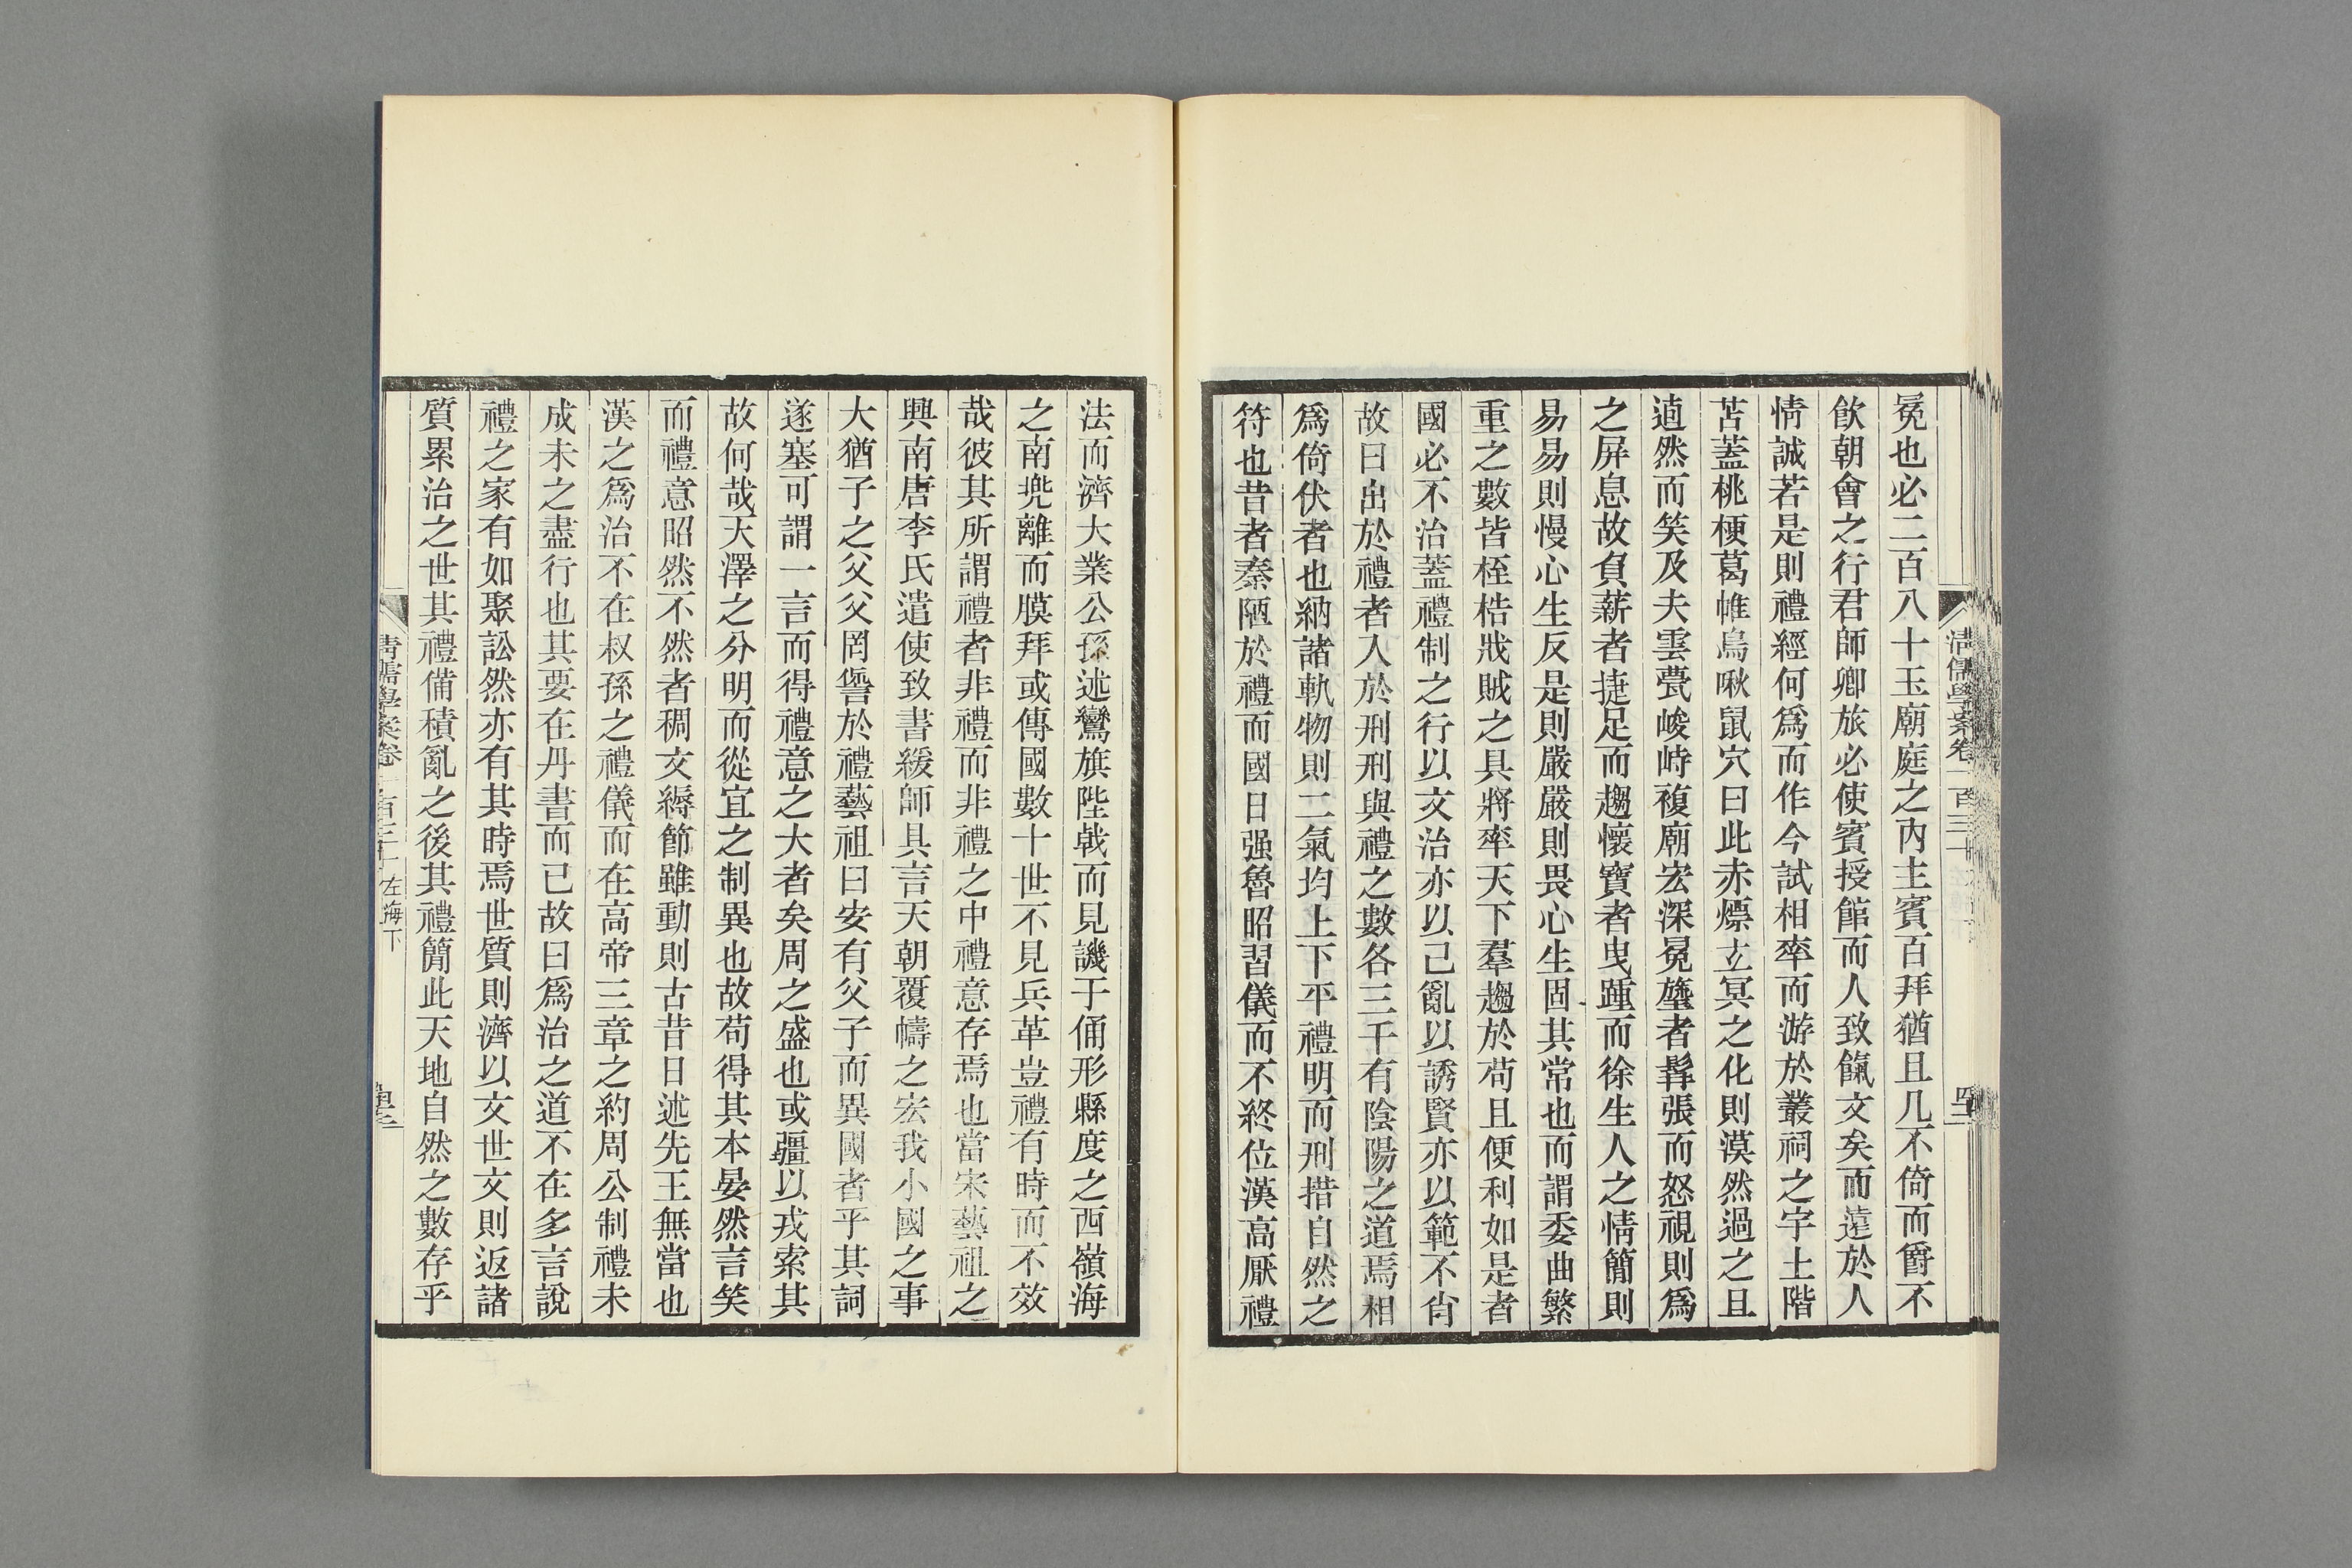 清儒學案卷一百三十
冕也必二百八十玉廟庭之內主賓百拜猶且几不倚而爵不
飲朝會之行君師卿旅必使賓授館而人致餼文矣而遠於人
情誠若是則禮經何爲而作今試相率而游於叢祠之宇土階
苫蓋桃梗葛帷烏啾鼠穴曰此赤熛玄冥之化則漠然過之且
逌然而笑及夫雲甍峻峙複廟宏深冕旒者髯張而怒視則爲
之屏息故負薪者捷足而趨懷寶者曳踵而徐生人之情簡則
易易則慢心生反是則嚴嚴則畏心生固其常也而謂委曲繁
重之數皆桎梏戕賊之具將率天下羣趨於苟且便利如是者
國必不治蓋禮制之行以文治亦以己亂以誘賢亦以範不肖
故曰出於禮者入於刑刑與禮之數各三千有陰陽之道焉相
爲倚伏者也納諸軌物則二氣均上下平禮明而刑措自然之
符也昔者秦陋於禮而國日强魯昭習儀而不終位漢高厭禮
法而濟大業公孫述鸞旗陛戟而見譏于俑形縣度之西嶺海
之南兜離而膜拜或傳國數十世不見兵革豈禮有時而不效
哉彼其所謂禮者非禮而非禮之中禮意存焉也當宋藝祖之
興南唐李氏遣使致書緩師具言天朝覆幬之宏我小國之事
大猶子之父父父罔諐於禮藝祖曰安有父子而異國者乎其詞
遂塞可謂一言而得禮意之大者矣周之盛也或疆以戎索其
故何哉天澤之分明而從宜之制異也故苟得其本晏然言笑
而禮意昭然不然者稠文縟節雖動則古昔日述先王無當也
漢之爲治不在叔孫之禮儀而在高帝三章之約周公制禮未
成未之盡行也其要在丹書而已故曰爲治之道不在多言說
禮之家有如聚訟然亦有其時焉世質則濟以文世文則返諸
質累治之世其禮備積亂之後其禮簡此天地自然之數存乎
清儒學案卷一百三十 左海下